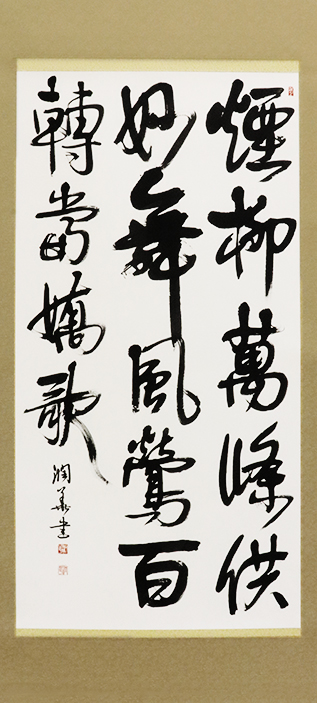 煙柳萬條供
妙舞風鶯百
轉當嬌歌
潤華書